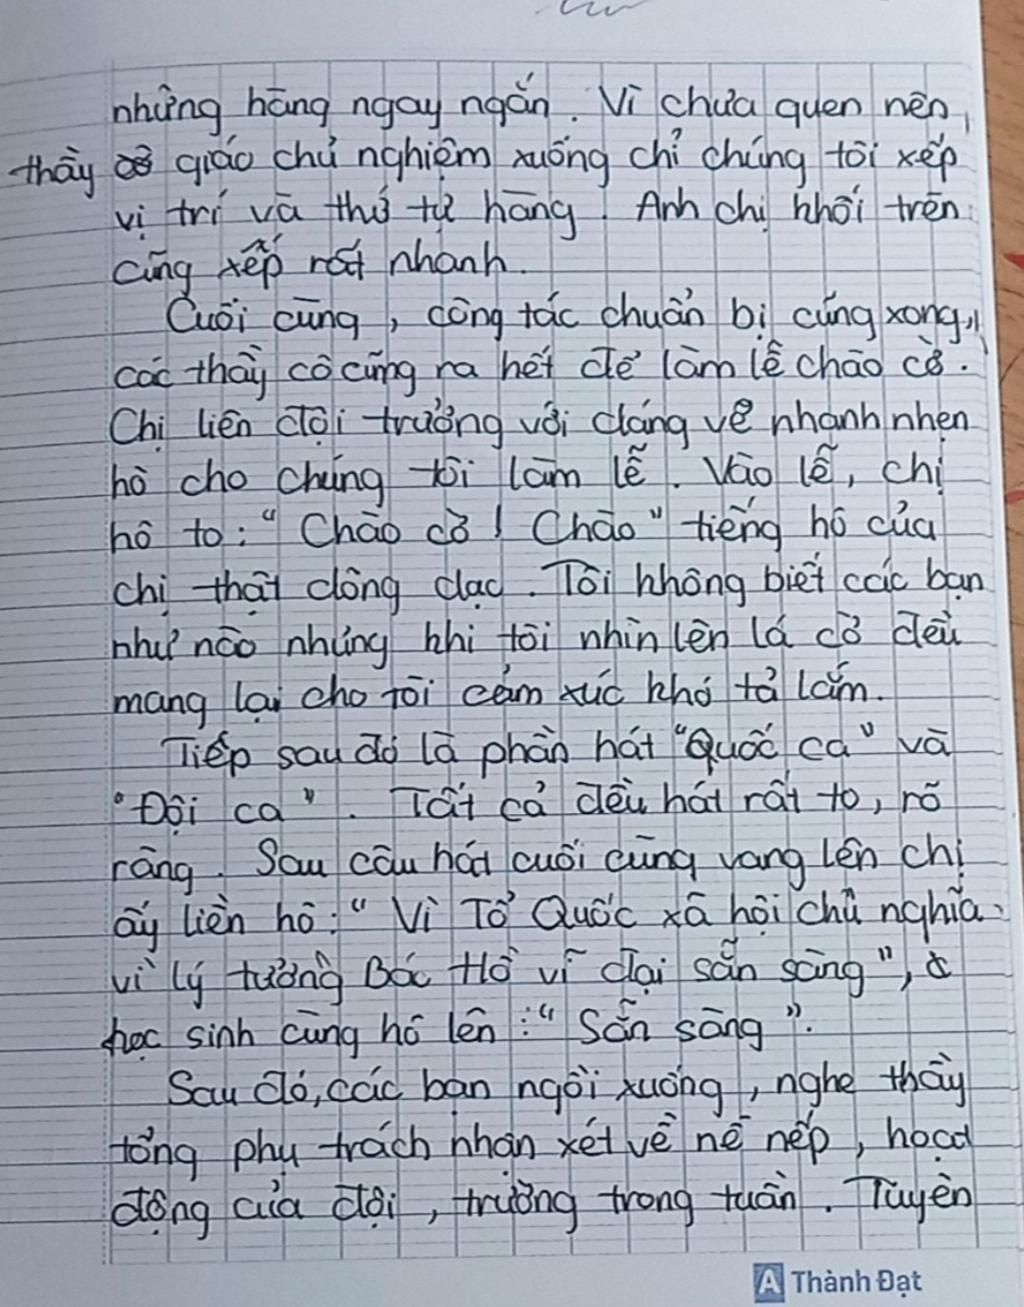 những hàng ngay ngắn. Vì chưa quen nên,
thầy cô giáo chủ nghiệm xuống chỉ chúng tôi xếp
vị trí và thứ tự hàng. Anh chị khối trên
cũng xếp rất nhanh.
Cuối cùng, công tác chuẩn bị cũng xong,
các thầy cô cũng ra hết để làm lễ chào cờ.
Chị liên đội trưởng với dáng vẻ nhanh nhẹn
hô cho chúng tôi làm lễ. Vào lễ, chị
hô to: "Chào cờ! Chào" tiếng hô của
chị thật dõng dạc. Tôi không biết các bạn
như nào nhưng khi tôi nhìn lên lá cờ đều
mang lại cho tôi cảm xúc khó tả lắm.
Tiếp sau đó là phần hát "Quốc ca" và
"Đội ca". Tất cả đều hát rất to, rõ
ràng. Sau câu hát cuối cùng vang lên chị
ấy liền hô: "Vì Tổ Quốc xã hội chủ nghĩa
vì lý tưởng Bác Hồ vĩ đại sẵn sàng",
học sinh cùng hô lên: "Sẵn sàng".
Sau đó, các bạn ngồi xuống, nghe thầy
tổng phụ trách nhận xét về nề nếp, hoạt
động của đội, trường trong tuần. Tuyên
Thành Đạt